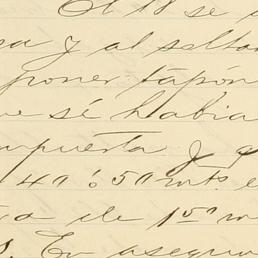 El 18 se
y al soltar
poner tapón
se sé habia
mpuerta y q
40 ó 50 mts. e
de 1.50 m
En asegur